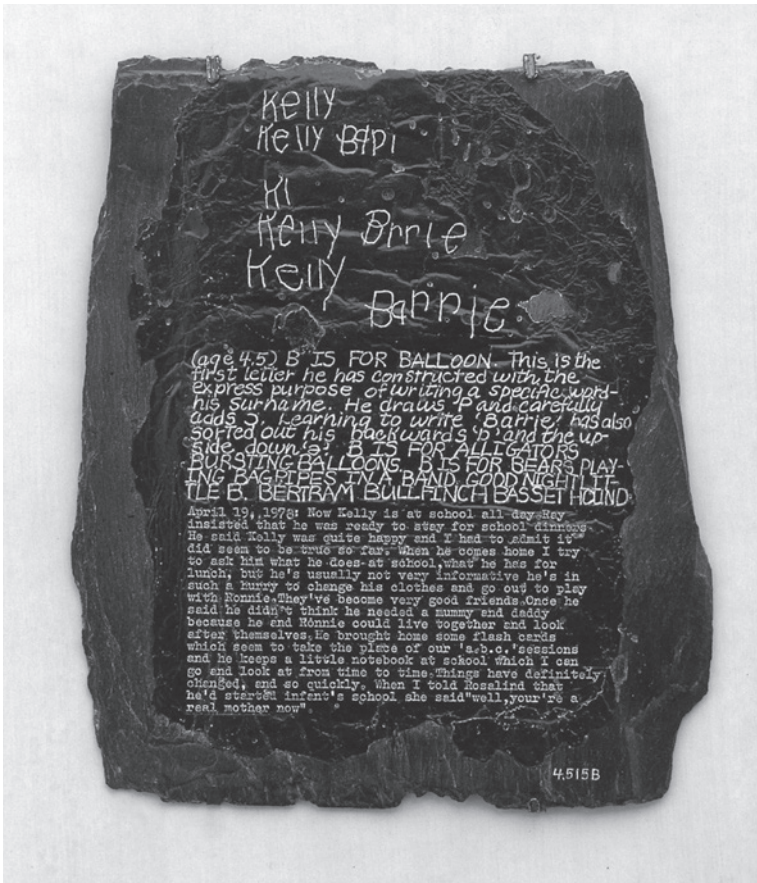 Kelly
Kelly BaPi
Kl
Kelly Brrie
Kelly
Barrie
(age 4.5) B IS FOR BALLOON. This is the
first letter he has constructed with the
express purpose of writing a specific word-
his surname. He draws 'P' and carefully
adds 3. Learning to write 'Barrie' has also
sorted out his backwards 'b' and the up-
side down 'e'. B IS FOR ALLIGATORS
BURSTING BALLOONS. B IS FOR BEARS PLAY-
ING BAGPIPES IN A BAND. GOOD NIGHT LIT-
TLE B. BERTRAM BULLFINCH BASSET HOUND.
April 19, 1978: Now Kelly is at school all day. Ray
insisted that he was ready to stay for school dinners.
He said Kelly was quite happy and I had to admit it
did seem to be true so far. When he comes home I try
to ask him what he does at school, what he has for
lunch, but he's usually not very informative he's in
such a hurry to change his clothes and go out to play
with Ronnie. They've become very good friends. Once he
said he didn't think he needed a mummy and daddy
because he and Ronnie could live together and look
after themselves. He brought home some flash cards
which seem to take the place of our 'a.b.c.' sessions
and he keeps a little notebook at school which I can
go and look at from time to time. Things have definitely
changed, and so quickly. When I told Rosalind that
he'd started infant's school she said "well, your're a
real mother now"
4.515B